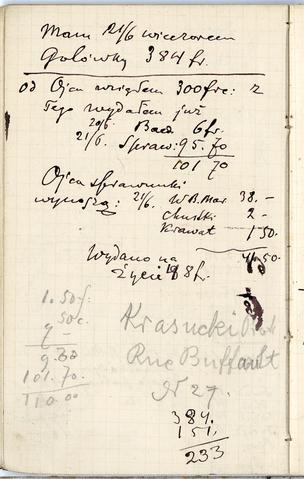 Mam 21/6 wieczorem
Gotówką 384 fr.
od Ojca wziąłem 300 frc: z
tego wydałem już
20/6. Baed 6 fr.
21/6. Spraw: 95.70
101 70
Ojca sprawunki
wynoszą: 21/6. W B. Mar 38.-
Chustki 2-
Krawat 1.50
41.50
Wydano na
życie 18 fr.
1.50 f:
50c
7-
9.00
101.70.
110.00
Krasucki
Rue Buffault
N 27.
384.
151.
233